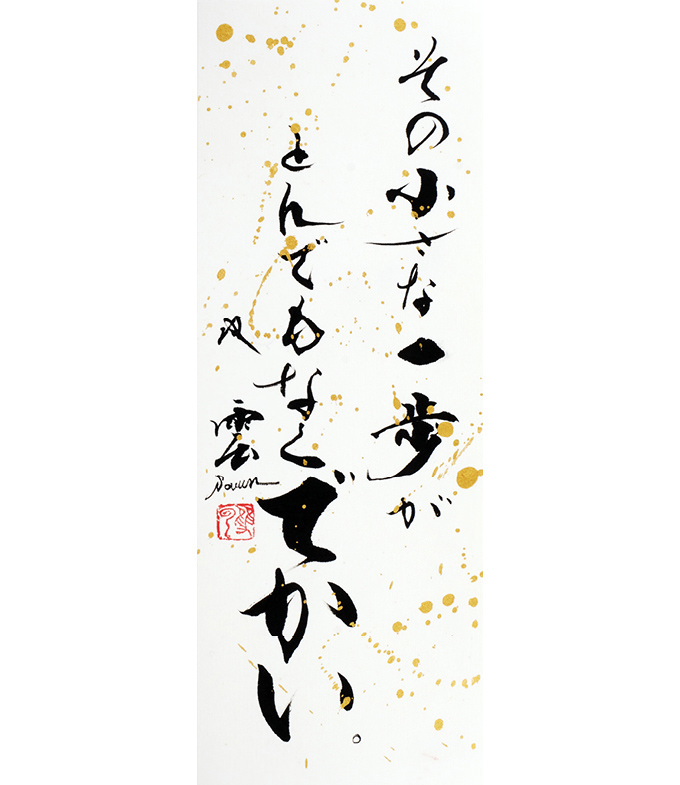 その小さな一歩が
とんでもなくでかい。
双雲
Souun